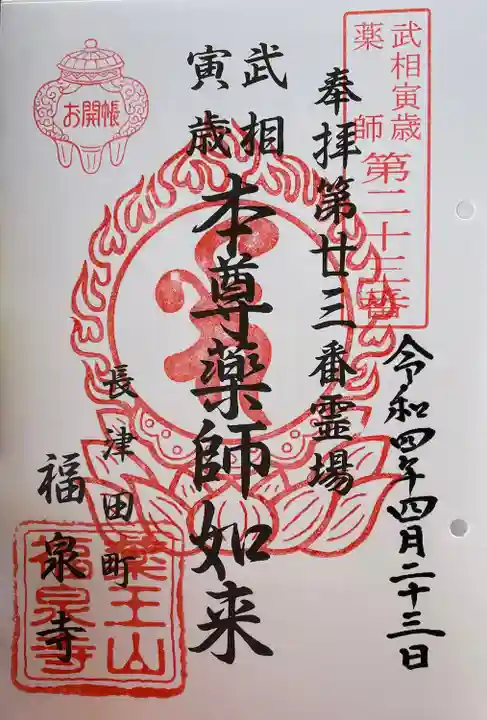 武相寅歳
薬師
第二十三番
奉拝第廿三番霊場
令和四年四月二十三日
武相
寅歳
本尊薬師如来
お開帳
長津田町
福泉寺
薬王山
福泉寺